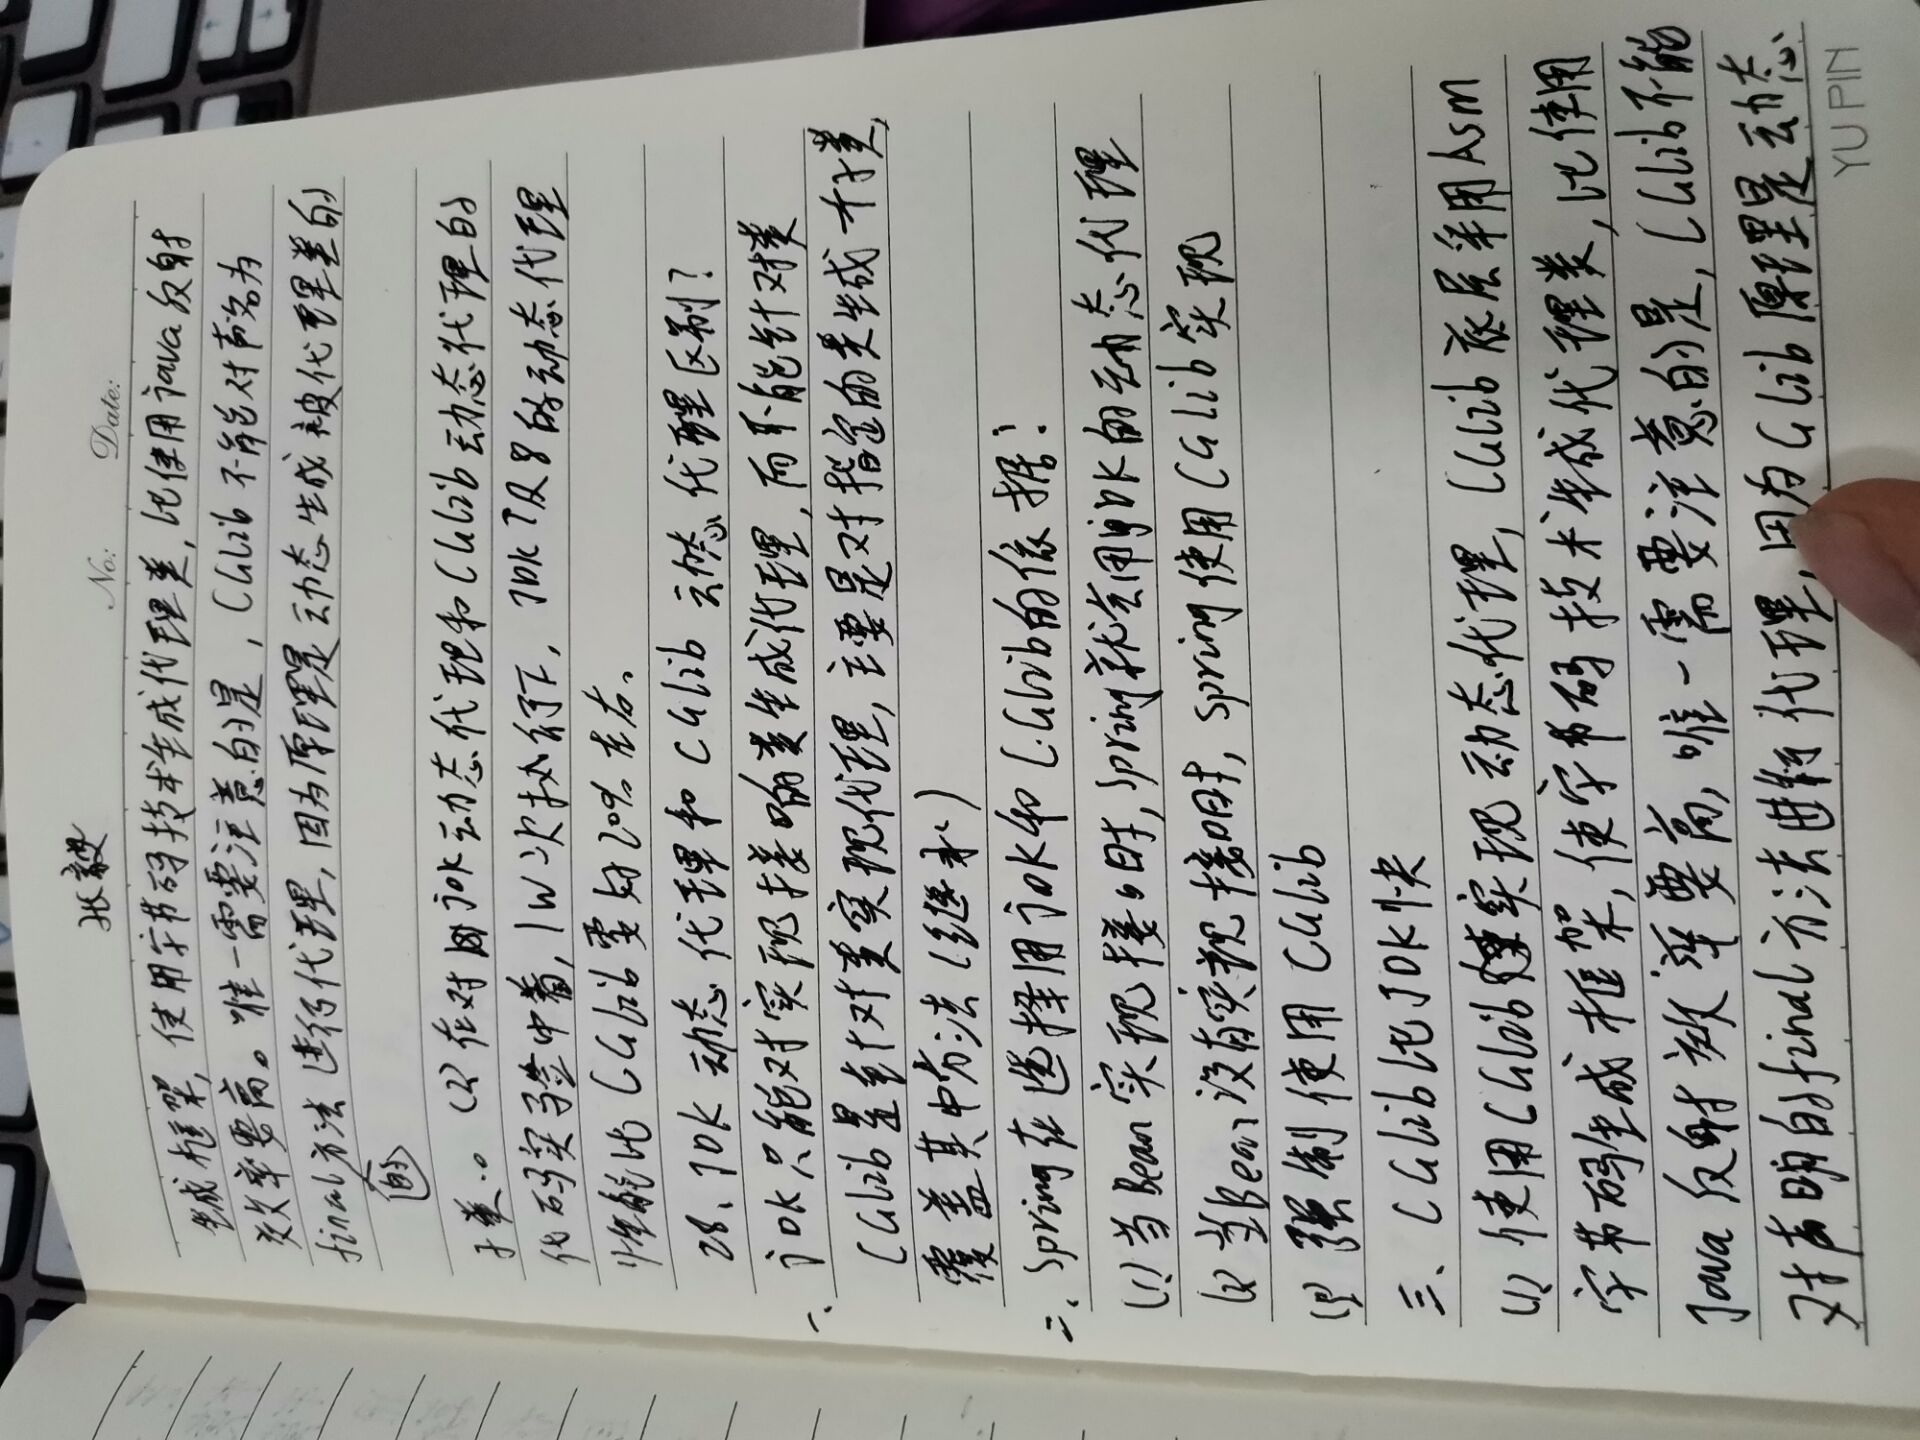 张毅
No: Date:
生成框架，使用字节码技术生成代理类，比使用java反射
效率要高。唯一需要注意的是，CGlib不能对声名为
final方法进行代理，因为原理是动态生成被代理类的
子类。 (2) 在对 JDK动态代理和CGlib动态代理的
代码实验中看，1W次执行下，JDK7及8的动态代理
性能比CGlib要好20%左右。
28、JDK动态代理和CGlib动态代理区别？
一、JDK只能对实现接口的类生成代理，而不能针对类
CGlib是针对类实现代理，主要是对指定的类生成一个子类，
覆盖其中方法（继承）
二、Spring在选择用JDK和CGlib的依据：
(1) 当Bean实现接口时，Spring就会用JDK的动态代理
(2) 当Bean没有实现接口时，Spring使用CGlib实现
(3) 强制使用CGlib
三、CGlib比JDK快
(1) 使用CGlib实现动态代理，CGlib底层采用ASM
字节码生成框架，使字节码技术生成代理类，比使用
Java反射效率要高，唯一需要注意的是，CGlib不能
对声明的final方法进行代理，因为CGlib原理是动态
YU PIN